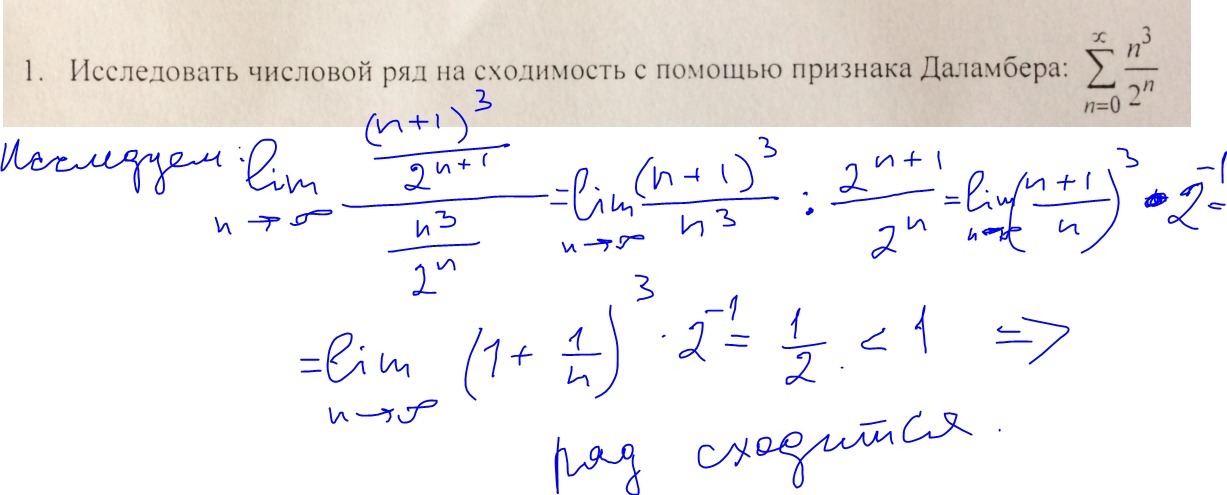 1. Исследовать числовой ряд на сходимость с помощью признака Даламбера: \sum_{n=0}^{\infty} \frac{n^3}{2^n}
Исследуем: \lim_{n \to \infty} \frac{\frac{(n+1)^3}{2^{n+1}}}{\frac{n^3}{2^n}} = \lim_{n \to \infty} \frac{(n+1)^3}{n^3} : \frac{2^{n+1}}{2^n} = \lim_{n \to \infty} \left(\frac{n+1}{n}\right)^3 \cdot 2^{-1} =
= \lim_{n \to \infty} \left(1 + \frac{1}{n}\right)^3 \cdot 2^{-1} = \frac{1}{2} < 1 \Rightarrow
ряд сходится.